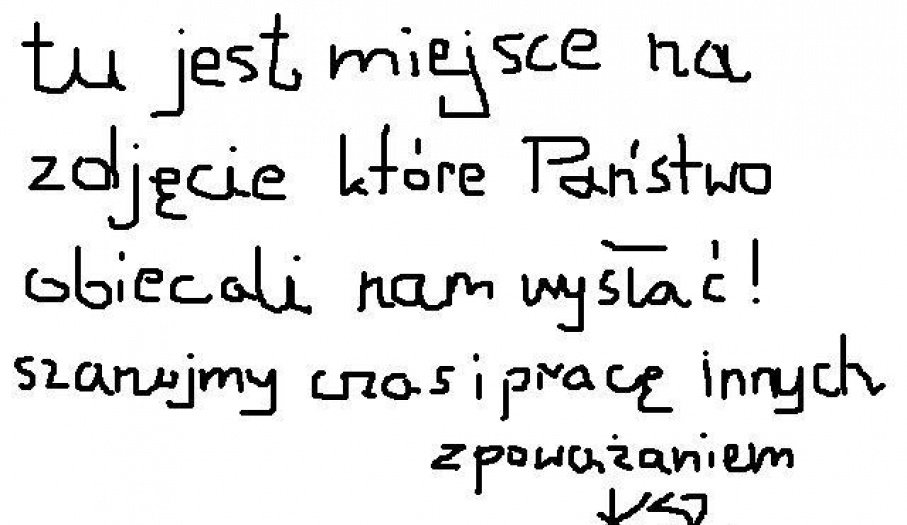 tu jest miejsce na
zdjęcie które Państwo
obiecali nam wysłać!
szanujmy czas i pracę innych
z poważaniem